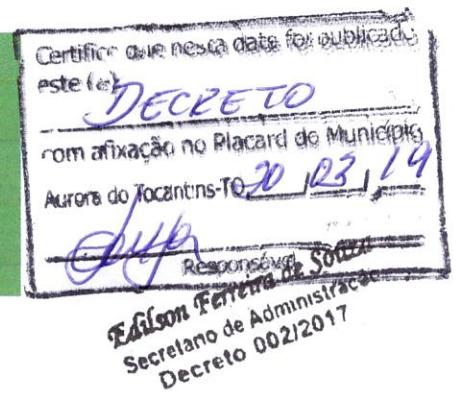 Certifico que nesta data foi publicado
este (a)
DECRETO
com afixação no Placard do Município
Aurora do Tocantins-TO 20 / 03 / 19
Responsável
Edilson Ferreira de Souza
Secretario de Administração
Decreto 002/2017